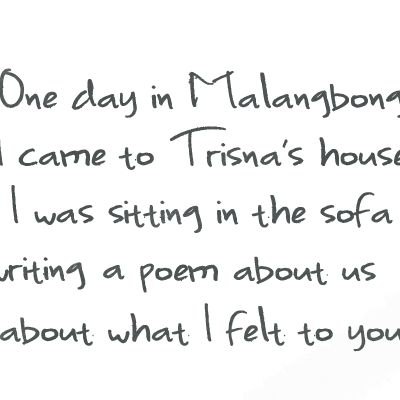 One day in Malangbong
I came to Trisna's house
I was sitting in the sofa
writing a poem about us
about what I felt to you